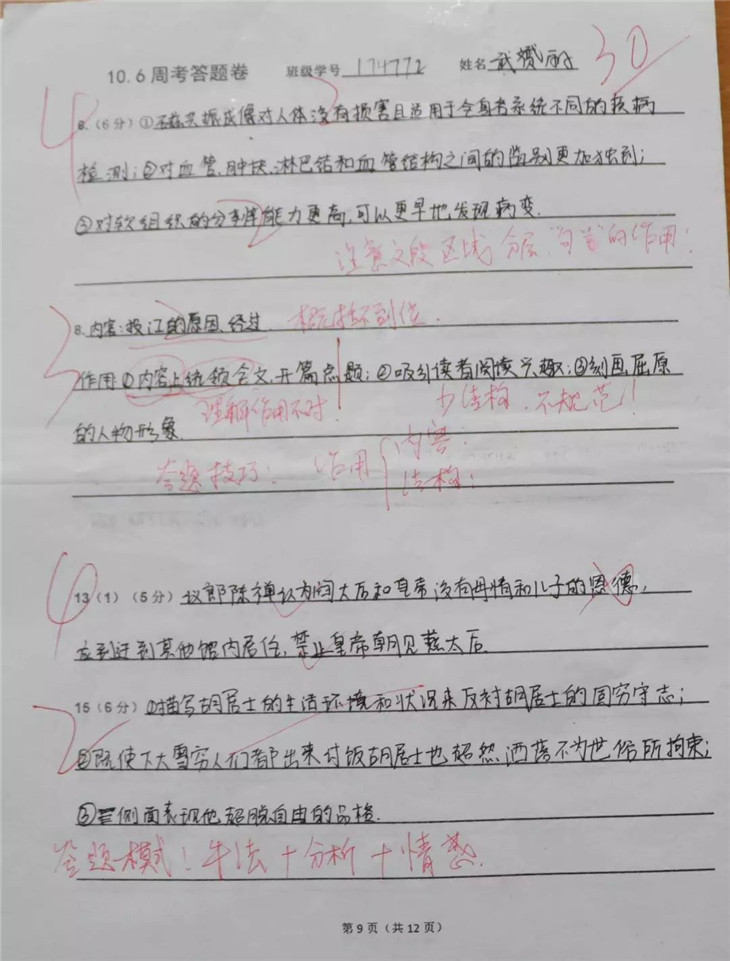 10.6周考答题卷 班级学号 174772 姓名 武 30
4
8.(6分)①磁共振成像对人体没有损害且适用于全身各系统不同的疾病
检测;②对血管、肿块、淋巴结和血管结构之间的鉴别更加独到;
③对软组织的分辨能力更高,可以更早地发现病变.
2
注意文段区域 分层,"句首"的作用!
3
8.内容:投江的原因、经过. 概括不到位.
作用①内容上统领全文,开篇点题;②吸引读者阅读兴趣;③刻画屈原
理解作用不对! 少结构,不规范!!
的人物形象.
答题技巧! 作用{内容:
结构:
4
13(1)(5分)议郎陈禅认为阎太后和皇帝没有母情和儿子的恩德,
应到迁到其他馆内居住,禁止皇帝朝见慈太后.
2
15(6分)①描写胡居士的生活环境和状况来反衬胡居士的固穷守志;
②既使下大雪穷人们都出来讨饭胡居士也超然洒落不为世俗所拘束;
③侧面表现他超脱自由的品格.
答题模式!手法+分析+情感.
第9页(共12页)